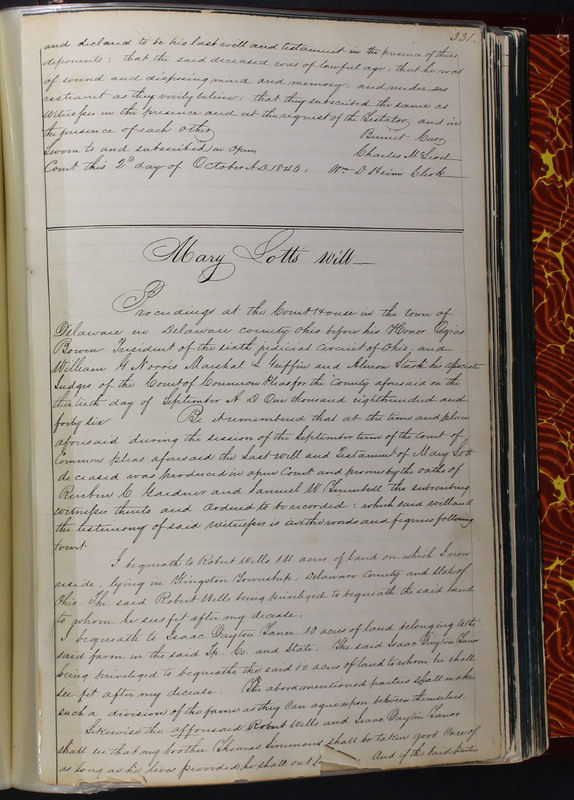 331.
and declared to be his last will and testament in the presence of these
deponents; that the said deceased was of lawful age; that he was
of sound and disposing mind and memory, and under no
restraint as they verily believe; that they subscribed the same as
witnesses in the presence and at the request of the Testator, and in
the presence of each other
Sworn to and subscribed in open Charles McLeod
Court this 2d day of October A.D. 1846. Wm D Heim Clerk
Mary Lotts will
Proceedings at the Court House in the town of
Delaware in Delaware county Ohio before his Honor Ozias
Bowen President of the sixth judicial circuit of Ohio, and
William G Norris Marshal L Griffin and Almon Stark his associate
Judges of the Court of Common Pleas for the County aforesaid on the
day of September A D One thousand eight hundred and
forty six Be it remembered that at the time and place
aforesaid during the session of the September term of the Court of
Common pleas aforesaid the Last will and Testament of Mary Lott
deceased was produced in open Court and proven by the oaths of
Reuben C Gardner and Samuel W Trumbell the subscribing
witnesses thereto and ordered to be recorded; which said will and
the testimony of said witnesses is in the words and figures following
towit.
I bequeath to Robert Wells 14 acres of land on which I now
reside, lying in Kingston Township, Delaware County and State of
Ohio The said Robert Wells being priviledged to bequeath the said land
to whom he sees fit after my decease.
I bequeath to Isaac Dayton Faner 10 acres of land belonging to the
said farm in the said Tp. Co. and State. The said Isaac Dayton Faner
being priviledged to bequeath the said 10 acres of land to whom he shall
see fit after my decease. The above mentioned parties shall make
such a division of the farm as they can agree upon between themselves.
Likewise the afforesaid Robert Wells and Isaac Dayton Faner
shall see that my brother Thomas Simmons shall be taken good care of
as long as he lives provided he shall out And if the said parties